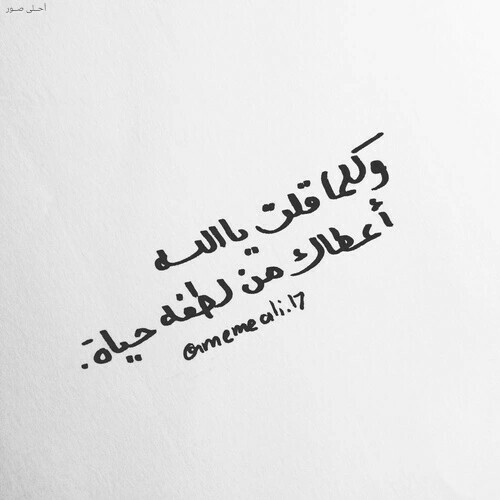 أحلى صور
وكلما قلت يا الله
أعطاك من لطفه حياة.
@memeali.17